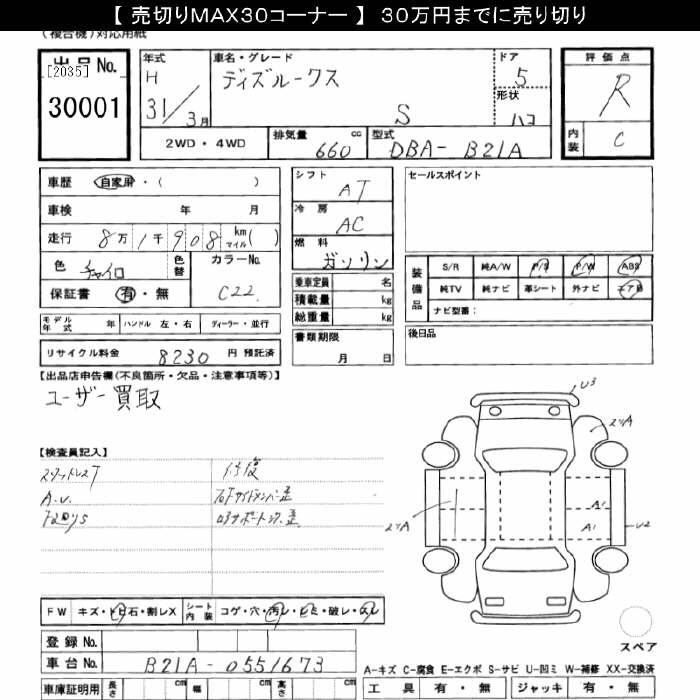 【 売切りMAX30コーナー 】 30万円までに売り切り
(複合機)対応用紙
出品No.
[2035]
30001
年式
H
31/3月
車名・グレード
ディズルークス
S
ドア
5
形状
ハコ
評価点
R
内装
C
2WD・4WD
排気量
660 cc
型式
DBA- B21A
車歴 自家用・( )
車検 年 月
走行 8万1千908 km マイル( )
色 チャイロ 色替
カラーNo. C22
保証書 有・無
モデル年式 年 ハンドル 左・右 ディーラー・並行
リサイクル料金 8230 円 預託済
シフト AT
冷房 AC
燃料 ガソリン
乗車定員 名
積載量 kg
総重量 kg
書類期限
月 日
セールスポイント
装備品
S/R 純A/W P/S P/W ABS
純TV 純ナビ 革シート 外ナビ エアB
ナビ型番:
後日品
【出品店申告欄(不良箇所・欠品・注意事項等)】
ユーザー買取
【検査員記入】
スタットレスT
A.U.
修復
U3
A1
A1
U2
FW キズ・トビ石・割レX
シート内装 コゲ・穴・汚レ・シミ・破レ・スレ
登録No.
車台No. B21A-0551673
車庫証明用 長さ cm 幅 cm 高さ cm
スペア
A-キズ C-腐食 E-エクボ S-サビ U-凹ミ W-補修 XX-交換済
工具 有・無 ジャッキ 有・無